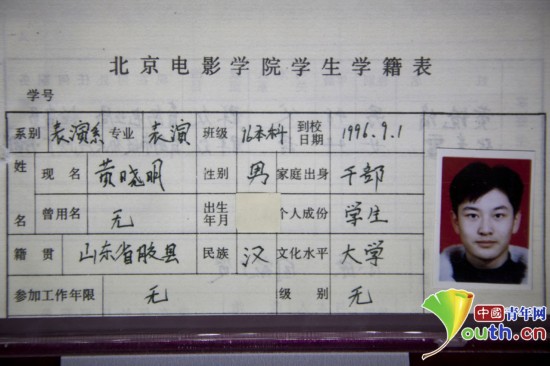 北京电影学院学生学籍表
学号
系别 表演系 专业 表演 班级 96本科 到校日期 1996.9.1
姓名 现名 黄晓明 性别 男 家庭出身 干部
曾用名 无 出生年月 个人成份 学生
籍贯 山东省胶县 民族 汉 文化水平 大学
参加工作年限 无 级别 无
中國青年网
Youth.cn